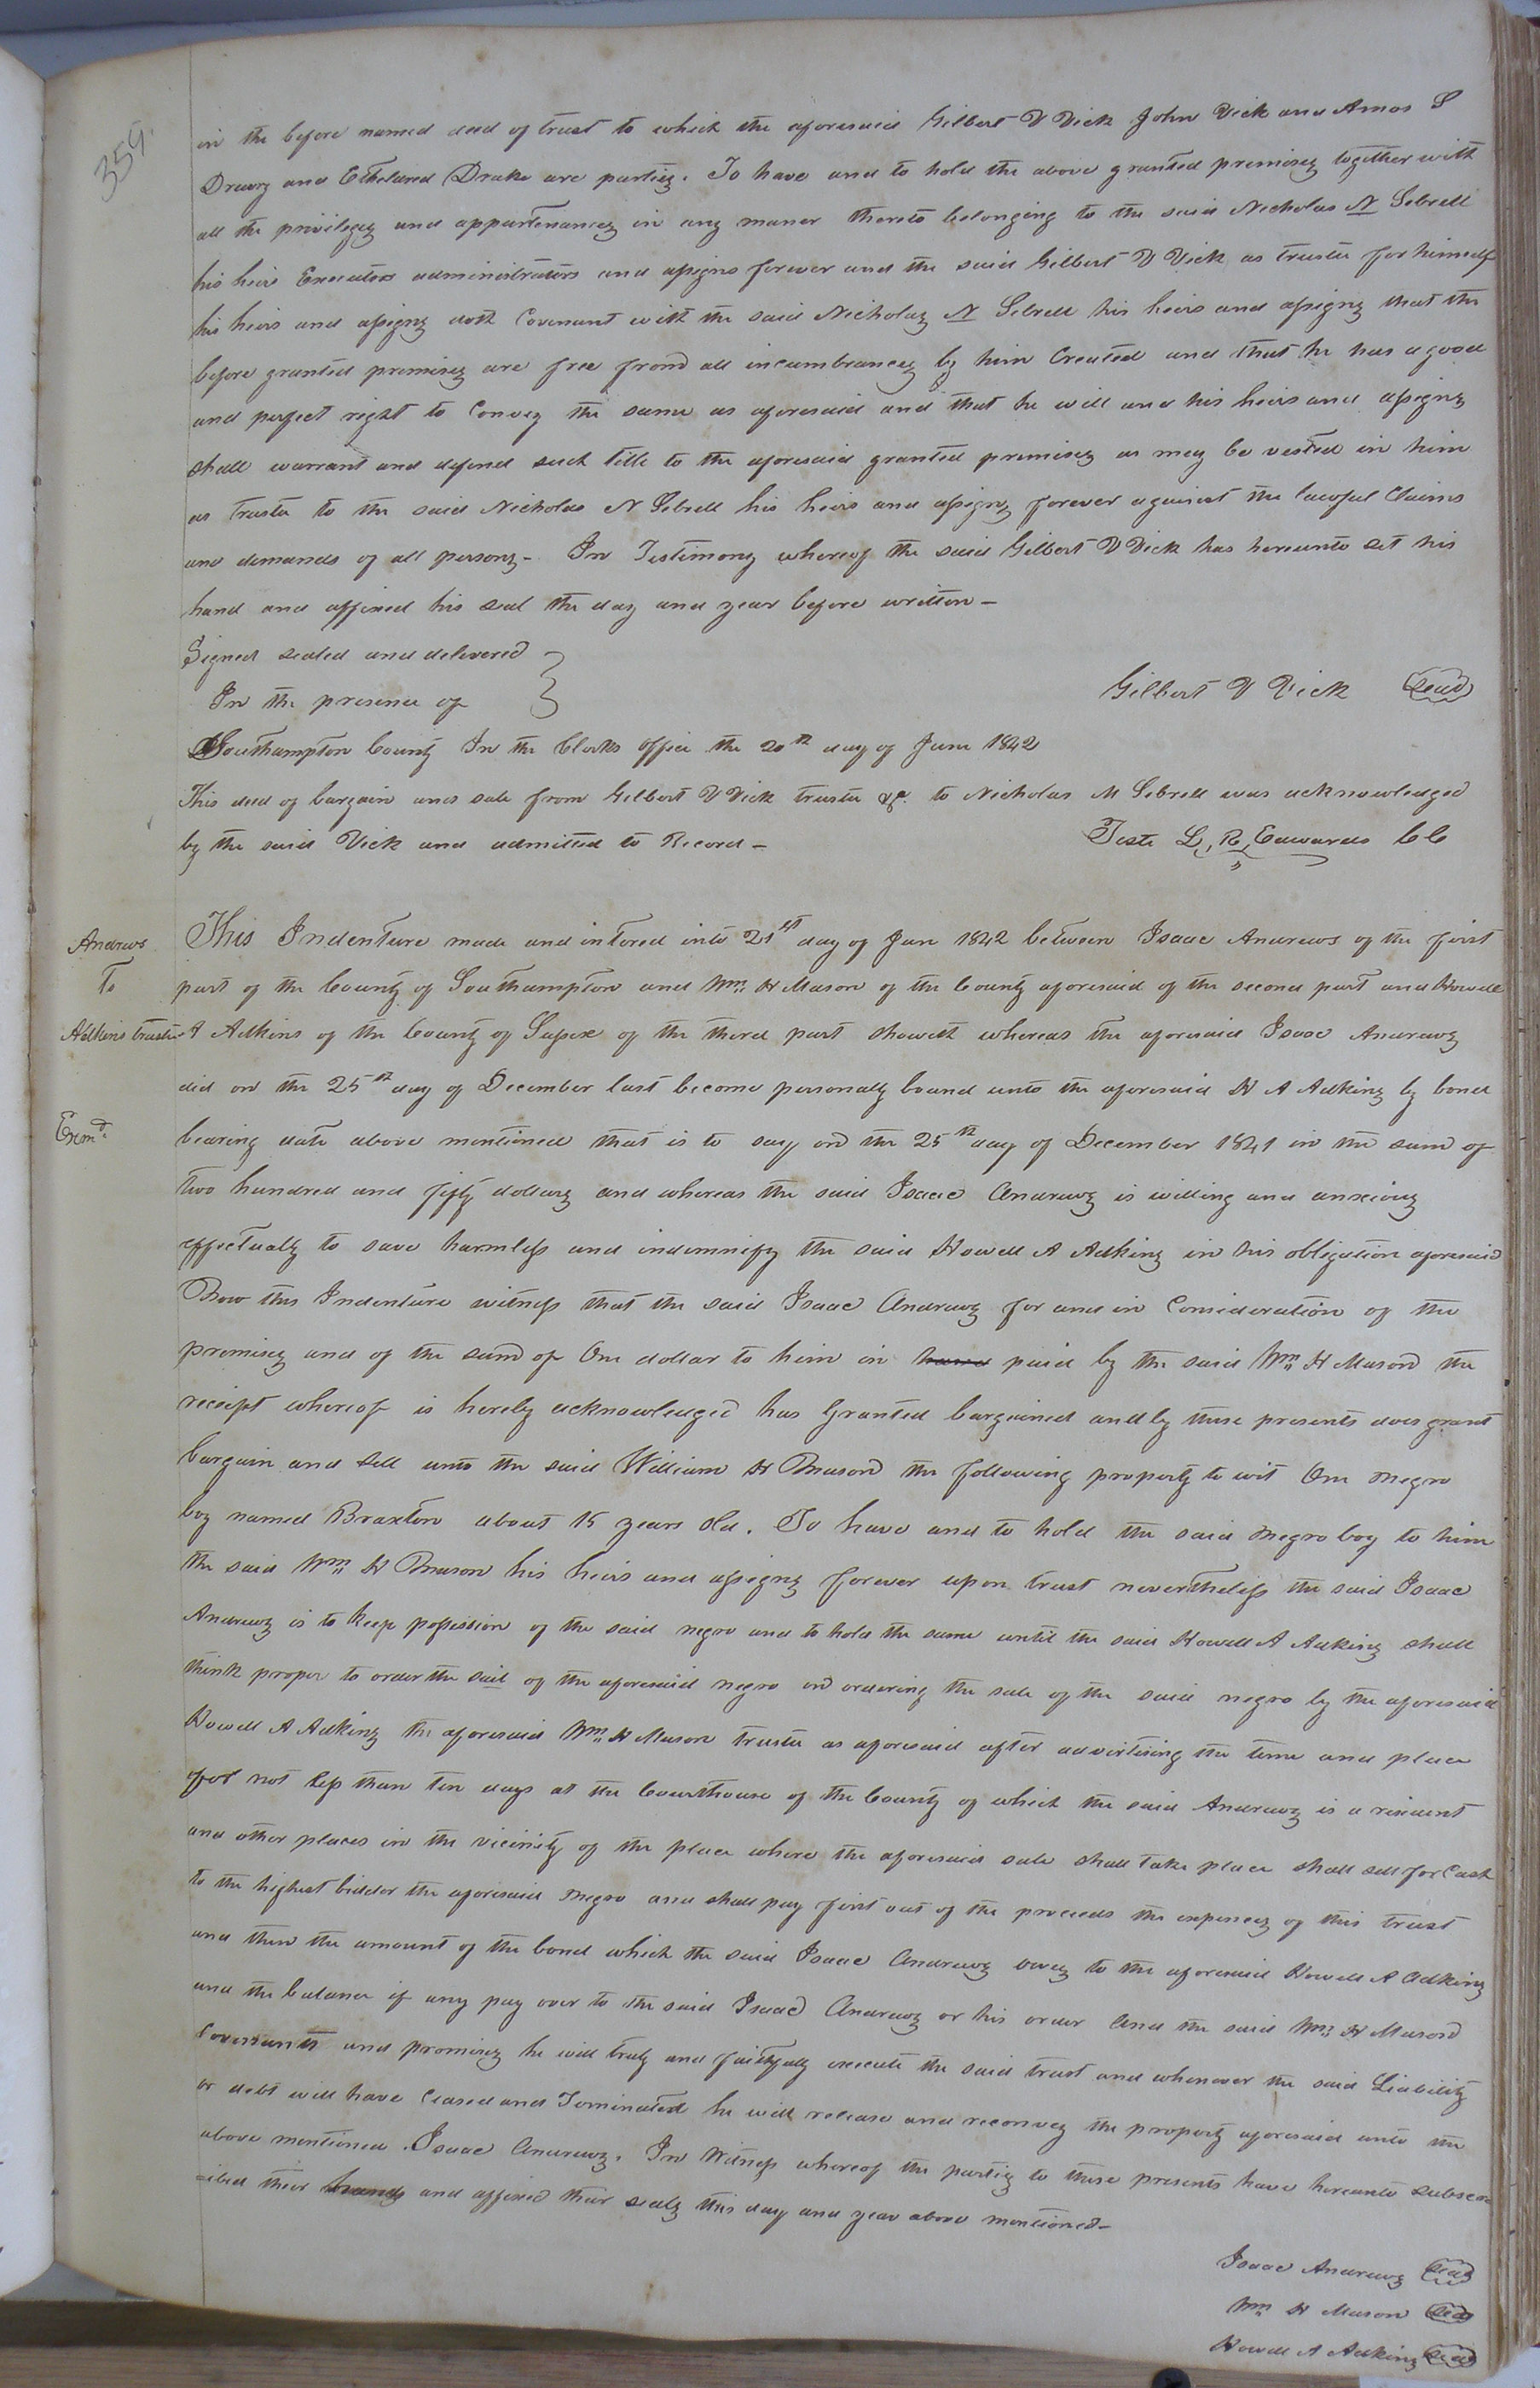 359.
in the before named deed of trust to which the aforesaid Gilbert V Vick John Vick and Amos S
Drewry and Etheldred Drake are parties. To have and to hold the above granted premises together with
all the privileges and appurtenances in any maner thereto belonging to the said Nicholas N Sebrell
his heirs Executors administrators and assigns forever and the said Gilbert V Vick as trustee for himself
his heirs and assigns doth Covenant with the said Nicholas N Sebrell his heirs and assigns that the
before granted premises are free from all incumbrances by him Created and that he has a good
and perfect right to Convey the same as aforesaid and that he will and his heirs and assigns
shall warrant and defend such title to the aforesaid granted premises as may be vested in him
as trustee to the said Nicholas N Sebrell his heirs and assigns forever against the lawful Claims
and demands of all persons - In Testimony whereof the said Gilbert V Vick has hereunto set his
hand and affixed his seal the day and year before written -
Signed sealed and delivered
In the presence of
Gilbert V Vick Seal
Southampton County In the Clerks office the 20th day of June 1842
This deed of bargain and sale from Gilbert V Vick trustee &c. to Nicholas M Sebrell was acknowledged
by the said Vick and admitted to Record -
Teste L, R, Edwards CC
Andrews
To
Adkins trustee
Exmd.
This Indenture made and intered into 21st day of Jan 1842 between Isaac Andrews of the first
part of the County of Southampton and Wm. H Mason of the County aforesaid of the second part and Howell
A Adkins of the County of Sussex of the third part showeth whereas the aforesaid Isaac Andrews
did on the 25th day of December last become personally bound unto the aforesaid H A Adkins by bond
bearing date above mentioned that is to say on the 25th day of December 1841 in the sum of
two hundred and fifty dollars and whereas the said Isaac Andrews is willing and anxious
effectually to save harmless and indemnify the said Howell A Adkins in his obligation aforesaid
Now this Indenture witness that the said Isaac Andrews for and in Consideration of the
premises and of the sum of One dollar to him in hand paid by the said Wm. H Mason the
receipt whereof is hereby acknowledged has Granted bargained and by these presents does grant
bargain and sell unto the said William H Mason the following property to wit One negro
boy named Braxton about 15 years old. To have and to hold the said negro boy to him
the said Wm. H Mason his heirs and assigns forever upon trust nevertheless the said Isaac
Andrews is to keep possession of the said negro and to hold the same until the said Howell A Adkins shall
think proper to order the sail of the aforesaid negro on ordering the sale of the said negro by the aforesaid
Howell A Adkins the aforesaid Wm. H Mason trustee as aforesaid after advertising the time and place
for not less than ten days at the Courthouse of the County of which the said Andrews is a resident
and other places in the vicinity of the place where the aforesaid sale shall take place shall sell for Cash
to the highest bidder the aforesaid negro and shall pay first out of the proceeds the expences of this trust
and then the amount of the bond which the said Isaac Andrews owes to the aforesaid Howell A Adkins
and the balance if any pay over to the said Isaac Andrews or his order And the said Wm. H Mason
Covenants and promises he will truly and faithfully execute the said trust and whenever the said Liability
or debt will have Ceased and Terminated he will release and reconvey the property aforesaid unto the
above mentioned Isaac Andrews. In Witness whereof the parties to these presents have hereunto subscri
=ibed their hands and affixed their seals this day and year above mentioned -
Isaac Andrews Seal
Wm H Mason Seal
Howell A Adkins Seal